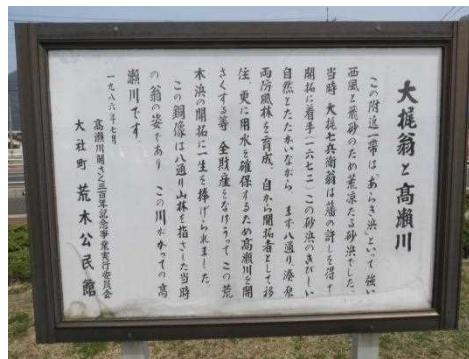 大梶翁と高瀬川
この附近一帯は"あらき浜"といって強い
西風と飛砂のため荒凉たる砂浜でした。
当時 大梶七兵衛翁は藩の許しを得て
開拓に着手(一六七二)この砂浜のきびしい
自然とたたかいながら まず八通り、湊原
両防風林を育成、自から開拓者として移
住、更に用水を確保するため高瀬川を開
さくする等 全財産をなげうってこの荒
木浜の開拓に一生を捧げられました。
この銅像は八通り山林を指さした当時
の翁の姿であり この川がかっての高
瀬川です。
一九八六年七月
高瀬川開さく三百年記念事業実行委員会
大社町 荒木公民館